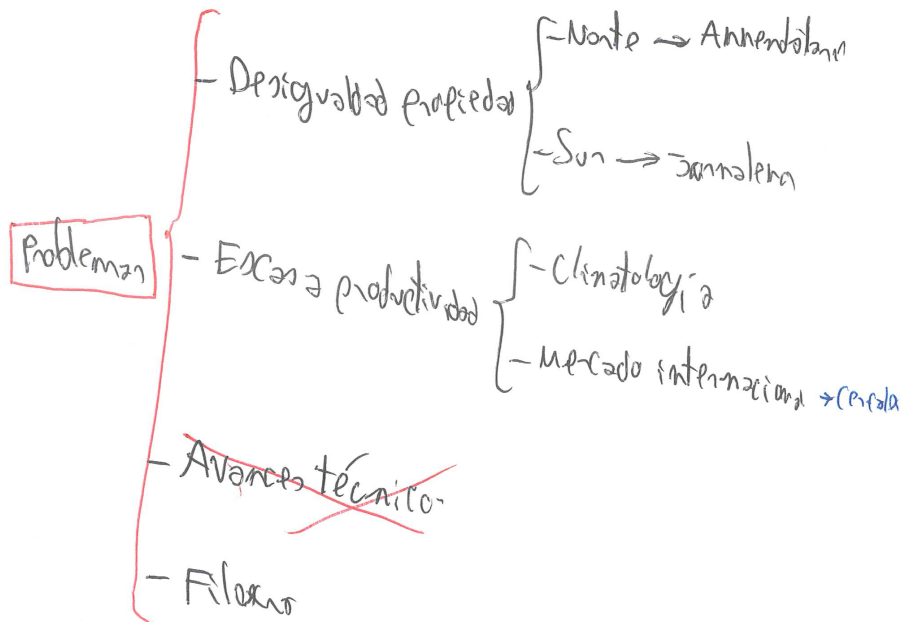 Problemas
- Desigualdad propiedad
- Norte → Arrendatarios
- Sur → Jornaleros
- Escasa productividad
- Climatología
- Mercado internacional → Cereales
- Avances técnico
- Filoxera